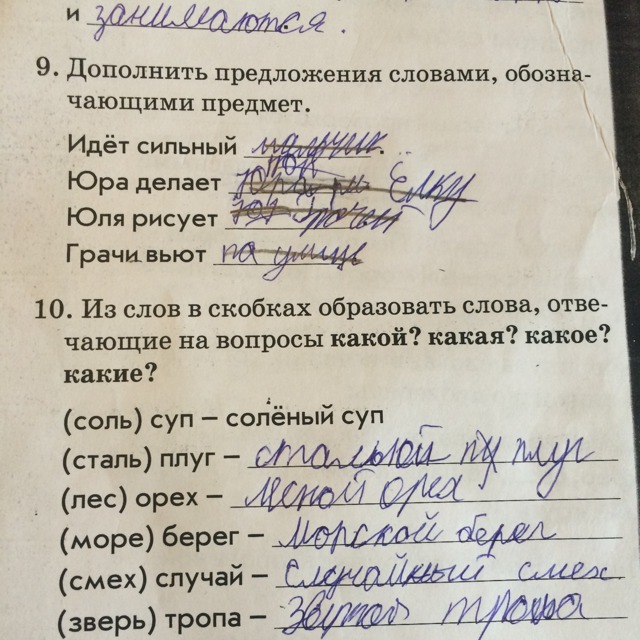 и занимаются.
9. Дополнить предложения словами, обозна-
чающими предмет.
Идёт сильный мальчик.
Юра делает Ёлку
Юля рисует
Грачи вьют на улице
10. Из слов в скобках образовать слова, отве-
чающие на вопросы какой? какая? какое?
какие?
(соль) суп – солёный суп
(сталь) плуг – стальной плуг
(лес) орех – лесной орех
(море) берег – Морской берег
(смех) случай – Случайный смех
(зверь) тропа – тропа